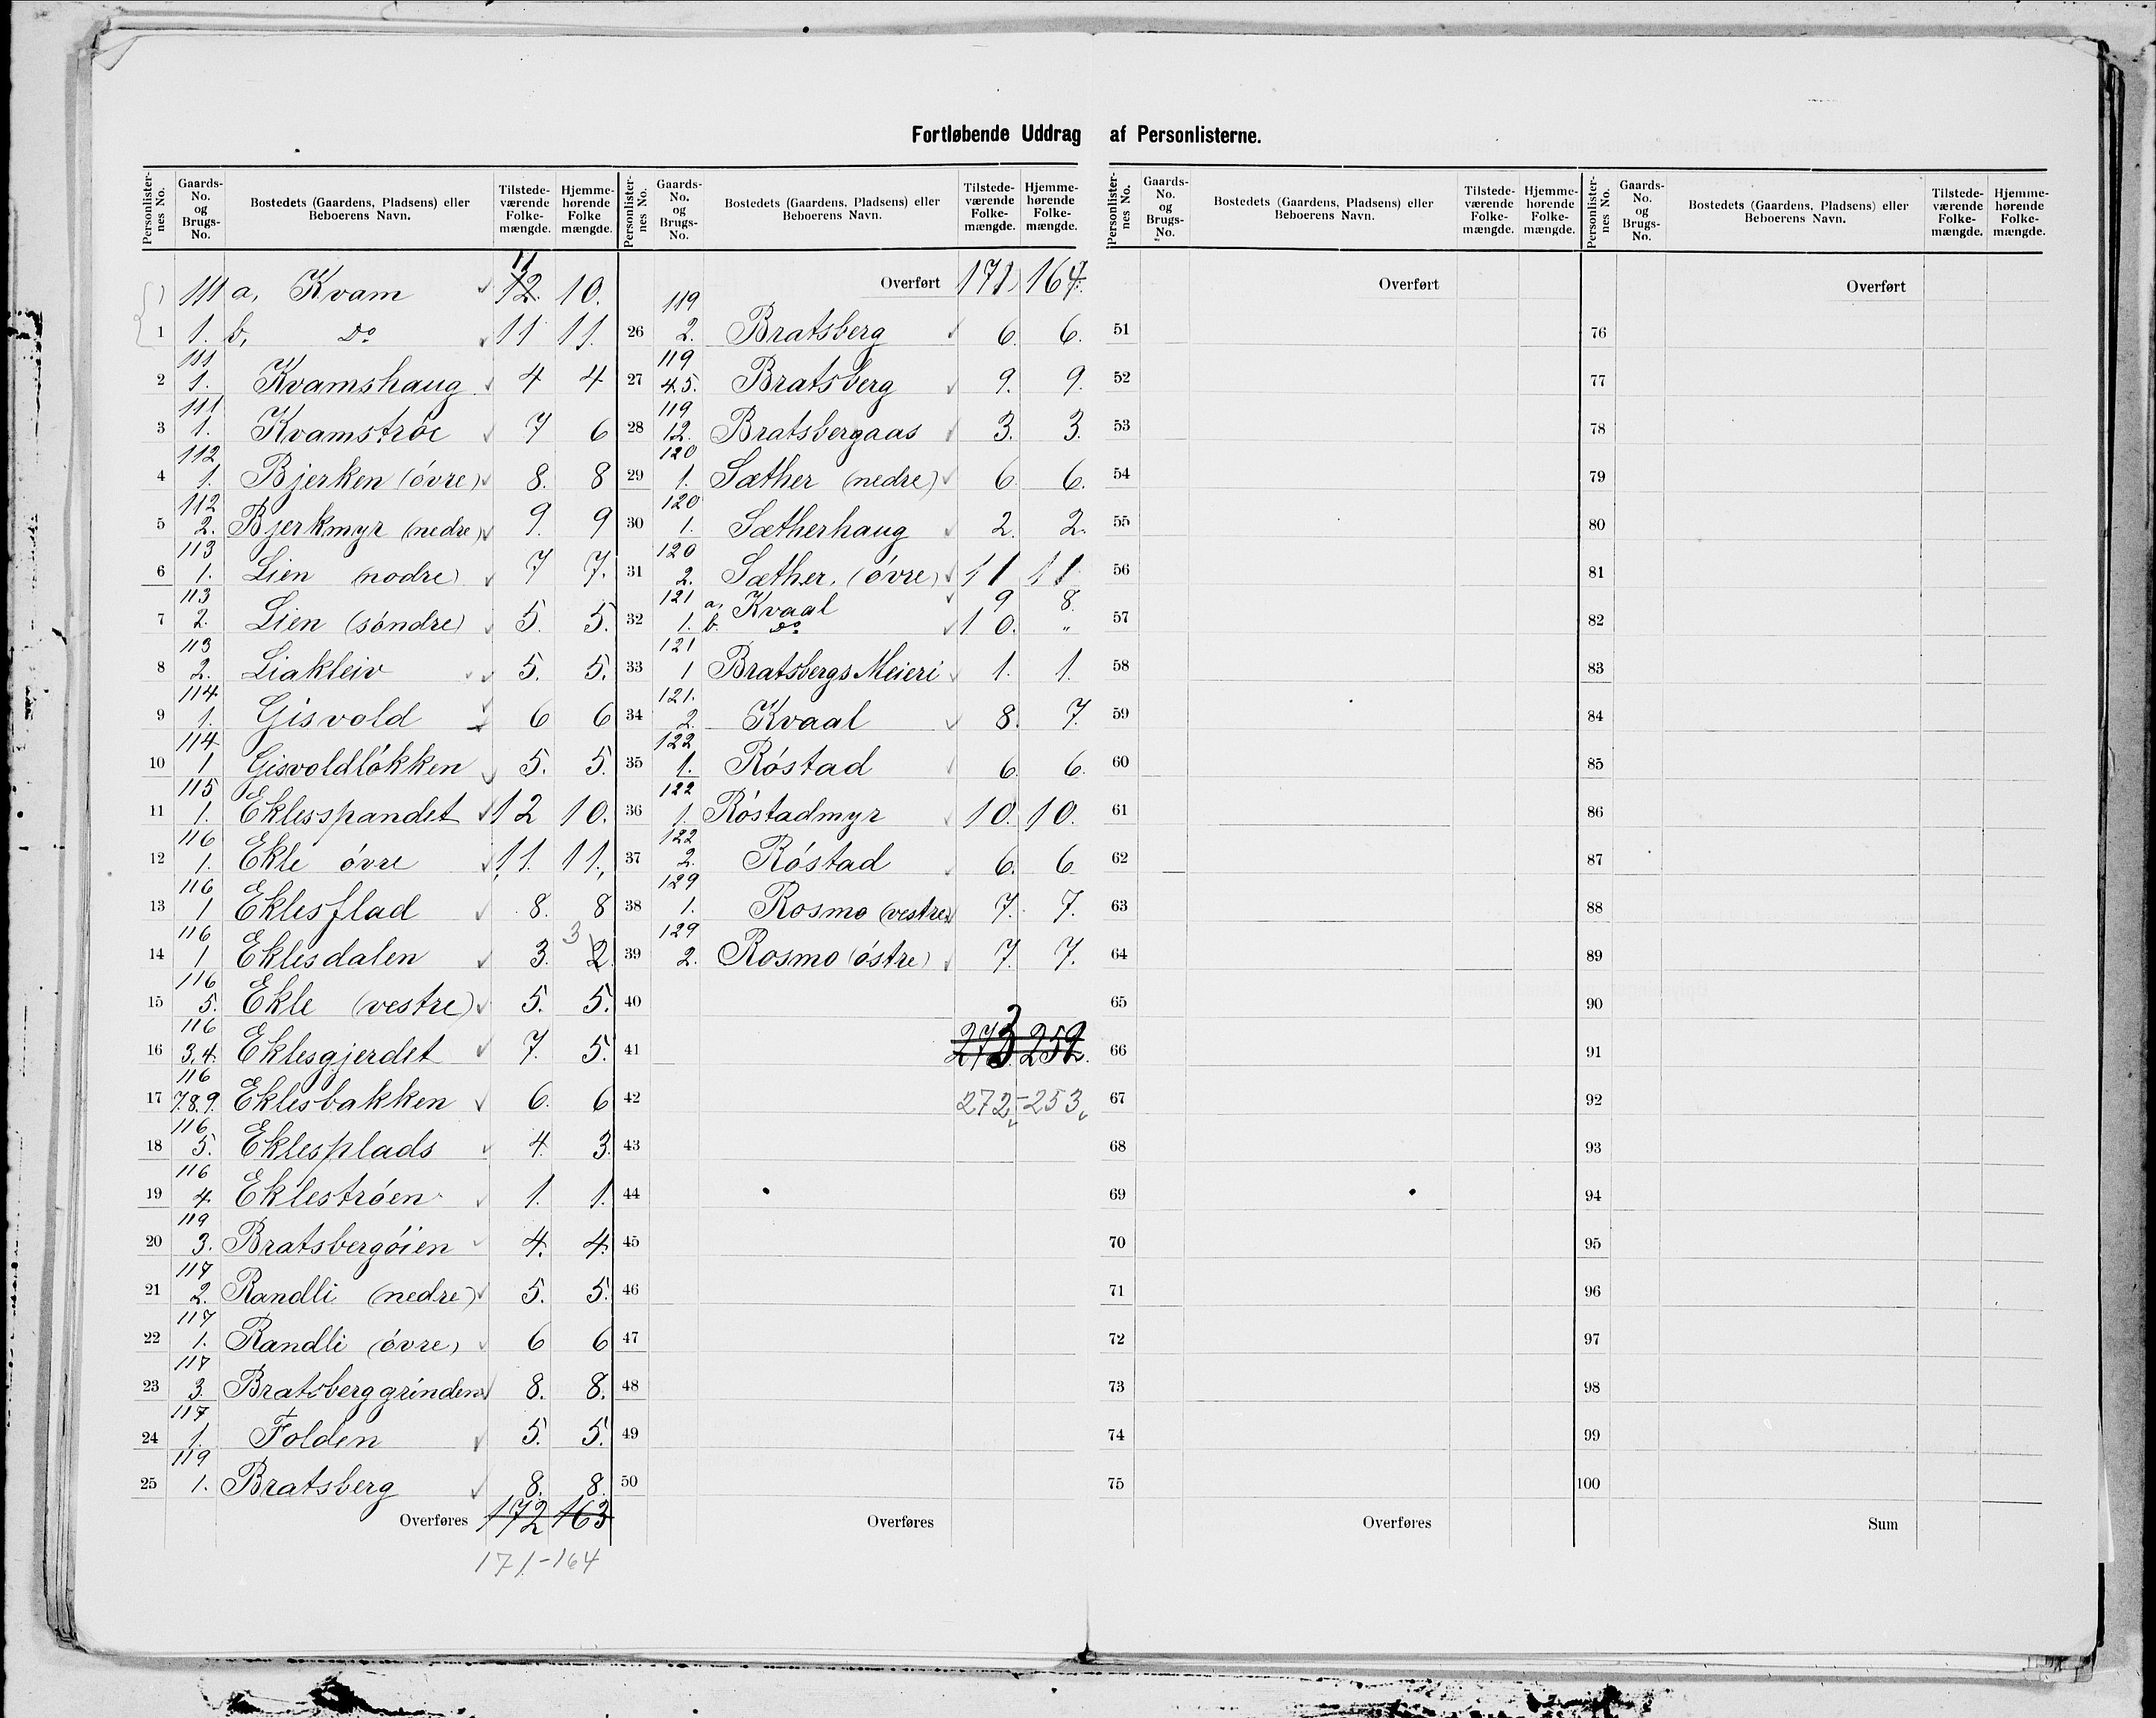 Fortløbende Uddrag af Personlisterne.
Personlister-nes No. | Gaards-No. og Brugs-No. | Bostedets (Gaardens, Pladsens) eller Beboerens Navn. | Tilstede-værende Folke-mængde. | Hjemme-hørende Folke mængde.
111 a, Kvam 12. 11 10.
1 1. b, Do 11 11.
2 111 1. Kvamshaug 4 4
3 111 1. Kvamstrøe 7 6
4 112 1. Bjerken (óvre) 8. 8
5 112 2. Bjerkmyr (nedre) 9. 9
6 113 1. Lien (nodre) 7 7.
7 113 2. Lien (sóndre) 5. 5.
8 113 2. Liakleiv 5. 5.
9 114 1. Gisvold 6 6
10 114 1 Gisvoldlókken 5. 5.
11 115 1. Eklesspandet 12 10.
12 116 1. Ekle óvre 11. 11.
13 116 1 Eklesflad 8. 8
14 116 1 Eklesdalen 3. 3 2.
15 116 5. Ekle (vestre) 5. 5.
16 116 3.4. Eklesgjerdet 7. 5.
17 116 7.8.9. Eklesbakken 6. 6
18 116 5. Eklesplads 4. 3.
19 116 4. Eklestróen 1. 1.
20 119 3. Bratsbergóien 4. 4.
21 117 2. Randli (nedre) 5. 5.
22 117 1. Randli (óvre) 6 6
23 117 3. Bratsberggrinden 8. 8.
24 117 1. Folden 5. 5.
25 119 1. Bratsberg 8. 8.
Overføres 172 163
171-164
Personlister-nes No. | Gaards-No. og Brugs-No. | Bostedets (Gaardens, Pladsens) eller Beboerens Navn. | Tilstede-værende Folke-mængde. | Hjemme-hørende Folke-mængde.
Overført 171 164.
26 119 2. Bratsberg 6. 6.
27 119 4.5. Bratsberg 9. 9.
28 119 12. Bratsbergaas 3. 3.
29 120 1. Sæther (nedre) 6. 6.
30 120 1. Sætherhaug 2. 2.
31 120 2. Sæther, (óvre) 11 11
32 121 a, Kvaal 9 8.
1. b. Do 10. "
33 121 1 Bratsbergs Meieri 1. 1.
34 121. 2. Kvaal 8. 7.
35 122 1. Róstad 6. 6.
36 122 1. Róstadmyr 10. 10.
37 122 2. Róstad 6. 6
38 129 1. Rosmo (vestre) 7. 7.
39 129 2. Rosmo (óstre) 7. 7.
40
41 273 252.
42 272-253
43
44
45
46
47
48
49
50
Overføres
Personlister-nes No. | Gaards-No. og Brugs-No. | Bostedets (Gaardens, Pladsens) eller Beboerens Navn. | Tilstede-værende Folke-mængde. | Hjemme-hørende Folke-mængde.
Overført
51
52
53
54
55
56
57
58
59
60
61
62
63
64
65
66
67
68
69
70
71
72
73
74
75
Overføres
Personlister-nes No. | Gaards-No. og Brugs-No. | Bostedets (Gaardens, Pladsens) eller Beboerens Navn. | Tilstede-værende Folke-mængde. | Hjemme-hørende Folke-mængde.
Overført
76
77
78
79
80
81
82
83
84
85
86
87
88
89
90
91
92
93
94
95
96
97
98
99
100
Sum